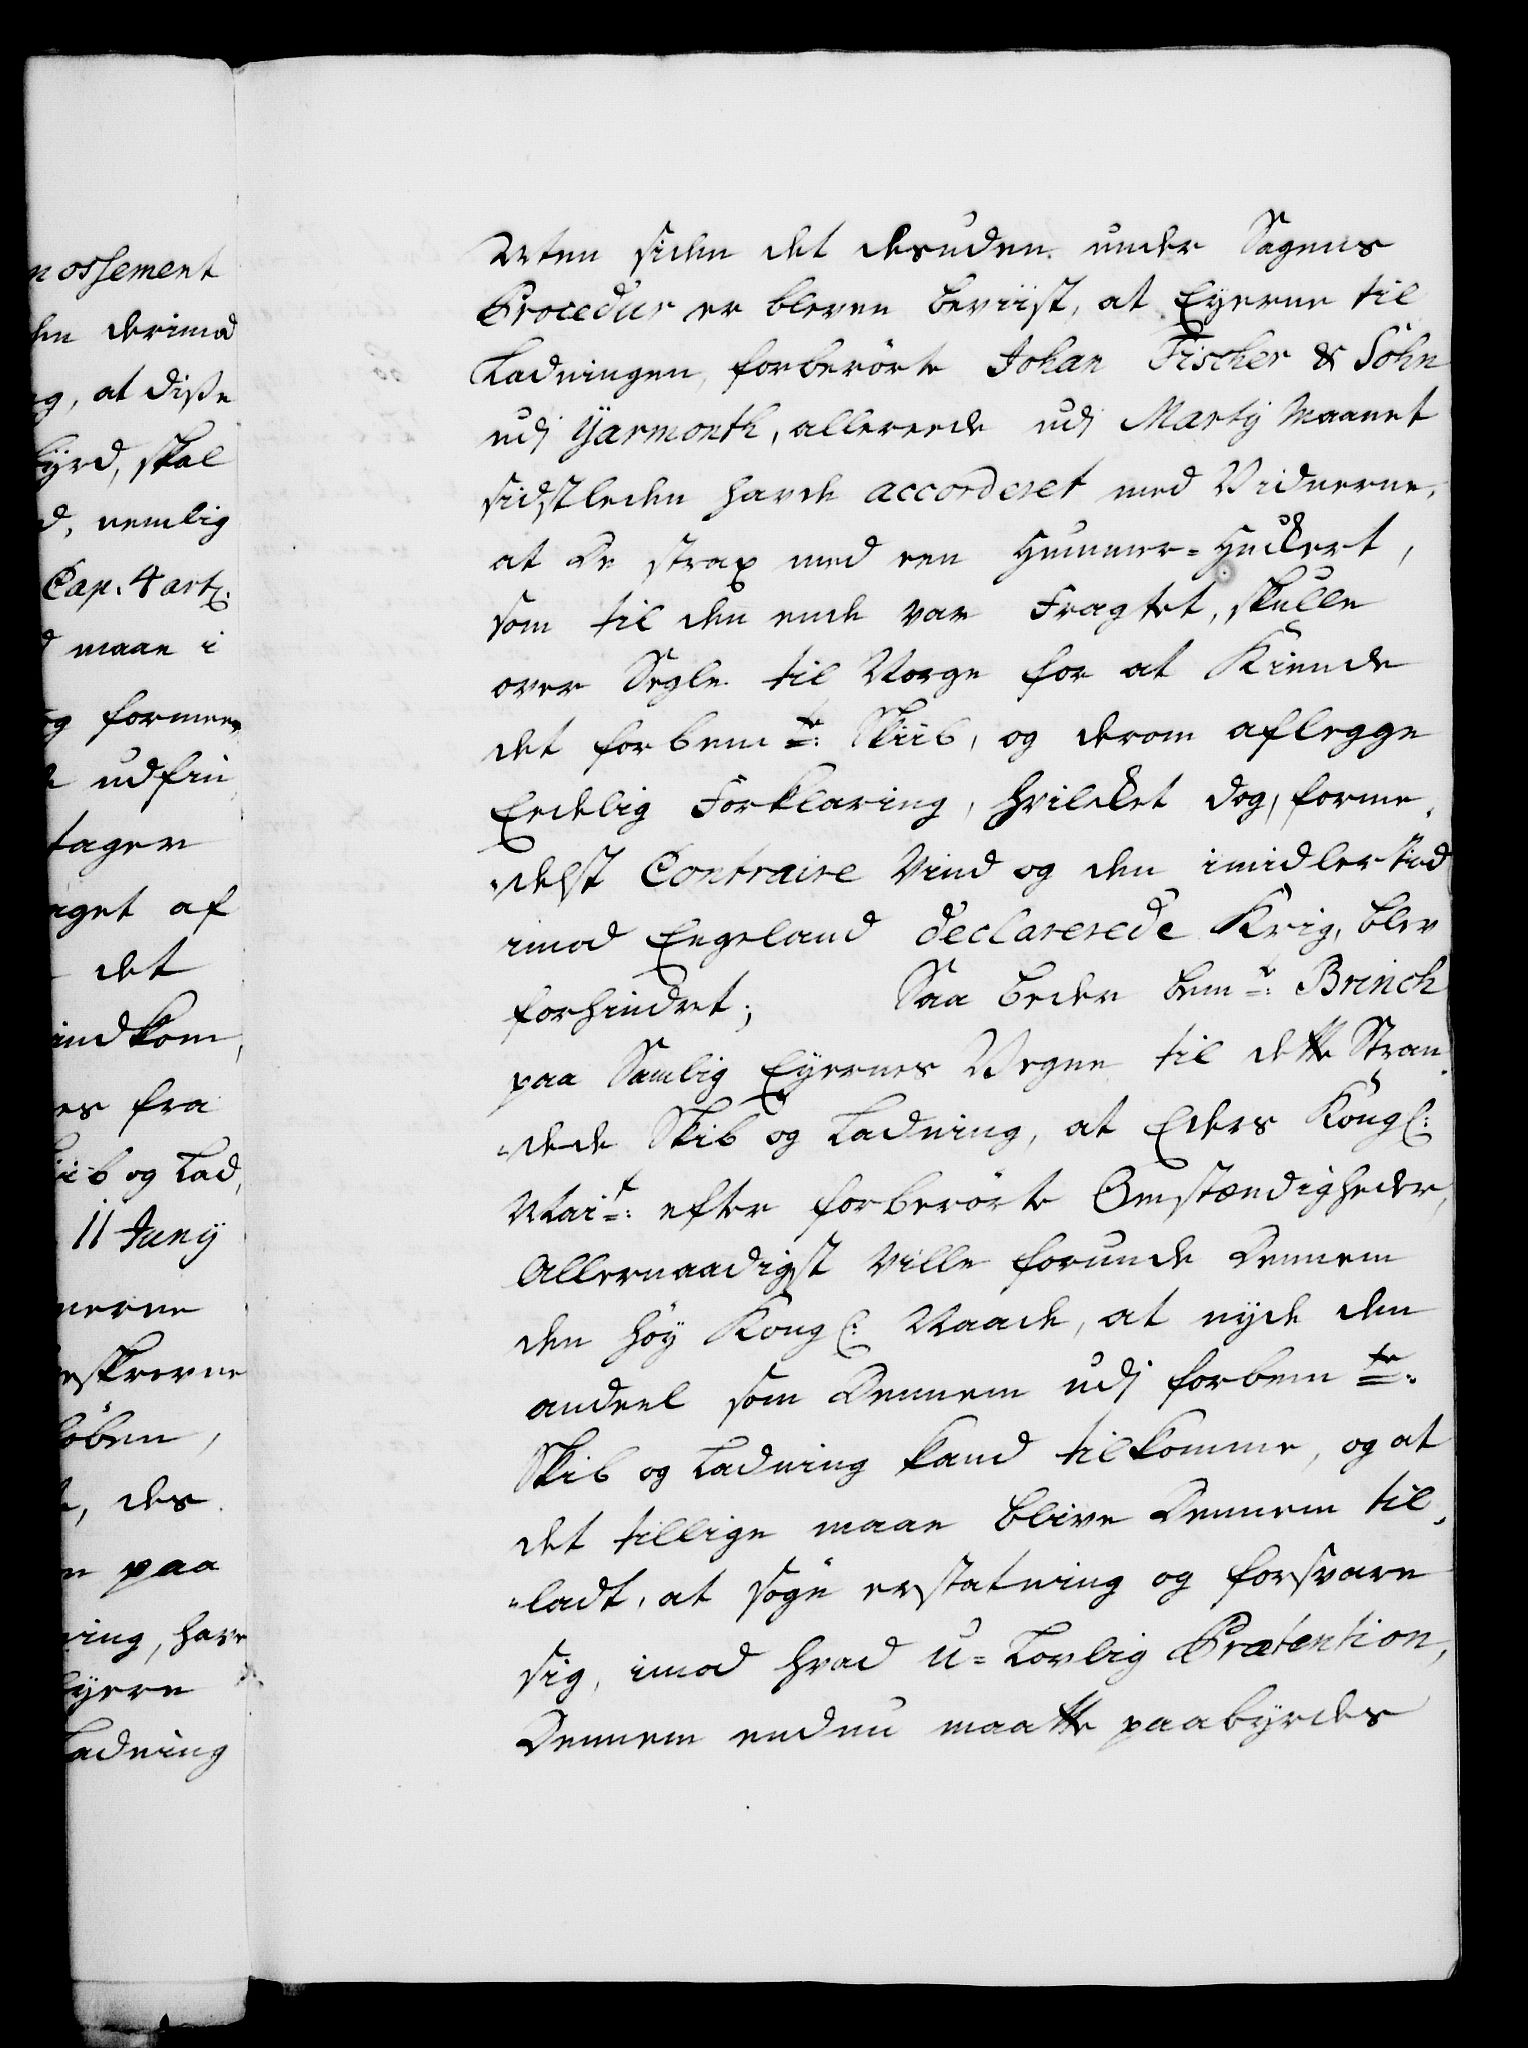 nossement
en derimod
g, at disse
byrd, skal
d, nemlig
Cap. 4 art:
d maae i
og formee
udfin
tager
iget af
det
indkom,
es fra
iib og Lad,
11 Juny
nerne
eskrevne
löben,
, des
n paa
ning, have
Eyere
Ladning
Men siden det desuden under Sagens
Procedur er bleven beviist, at Eyerne til
Ladningen, forberörte Johan Fischer & Söhn
udj Yarmouth, allereede udj Martij Maanet
sidstleden havde accorderet med Vidnerne,
at De strax med een Hummer-Huckert,
som til den ende var Fragtet, skulle
over Segle til Norge for at Kiende
det forbem.te: Skiib, og derom aflegge
Eedelig Forklaring, hvilcket dog, forme,
„delst Contraire Vind og den imidlertiid
imod Engeland declarerede Krig, blev
forhindret; Saa beder bem.te: Brinch
paa Samlig Eyernes Vegne til dette Stran
„dede Skib og Ladning, at Eders Kongl:
Mai.t: efter forberörte Omstændigheder,
Allernaadigst Ville forunde Dennem
den höy Kongl: Naade, at nyde den
andeel som Dennem udj forbem.te:
Skib og Ladning kand tilkomme, og at
det tillige maae blive Dennem til„
„ladt, at söge erstatning og forsvare
sig, imod hvad u-Lovlig Prætention,
Dennem endnu maatte paabyrdes